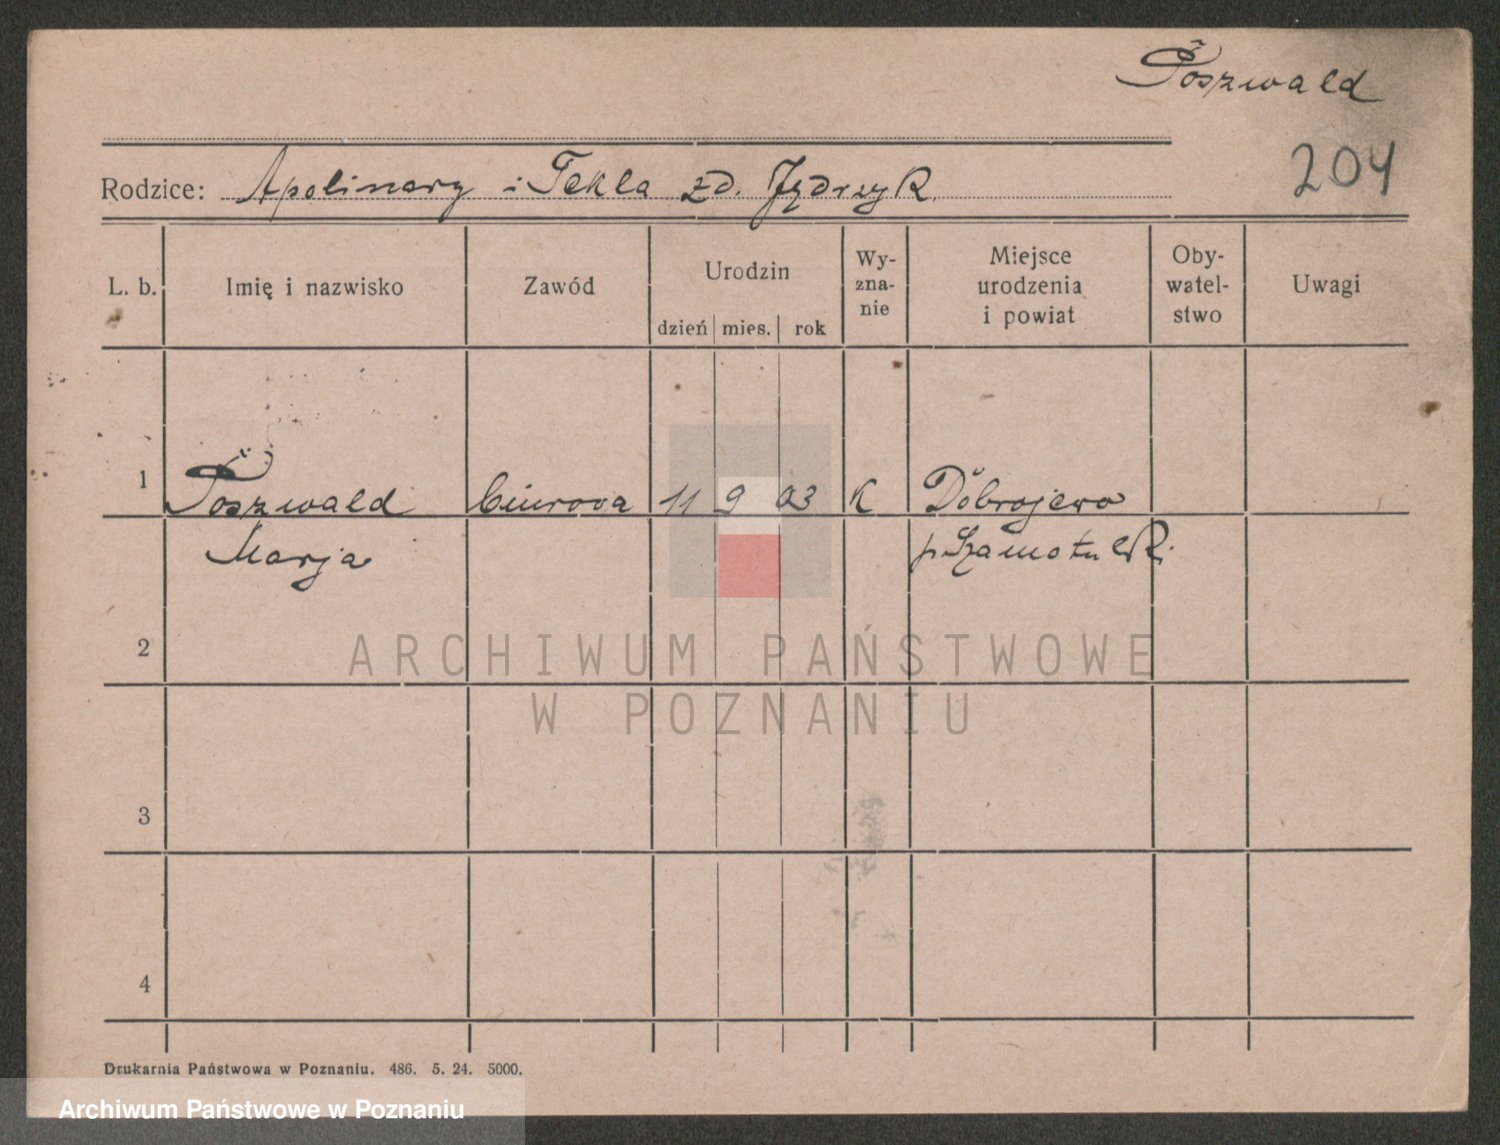 Poszwald
204
Rodzice: Apolinary i Tekla zd. Jędrzyk
L. b. Imię i nazwisko Zawód Urodzin Wy-zna-nie Miejsce urodzenia i powiat Oby-watel-stwo Uwagi
dzień mies. rok
1 Poszwald biurowa 11 9 03 K Dobrojewo
Marja p. Szamotulski
2
3
4
ARCHIWUM PAŃSTWOWE
W POZNANIU
Drukarnia Państwowa w Poznaniu. 486. 5. 24. 5000.
Archiwum Państwowe w Poznaniu